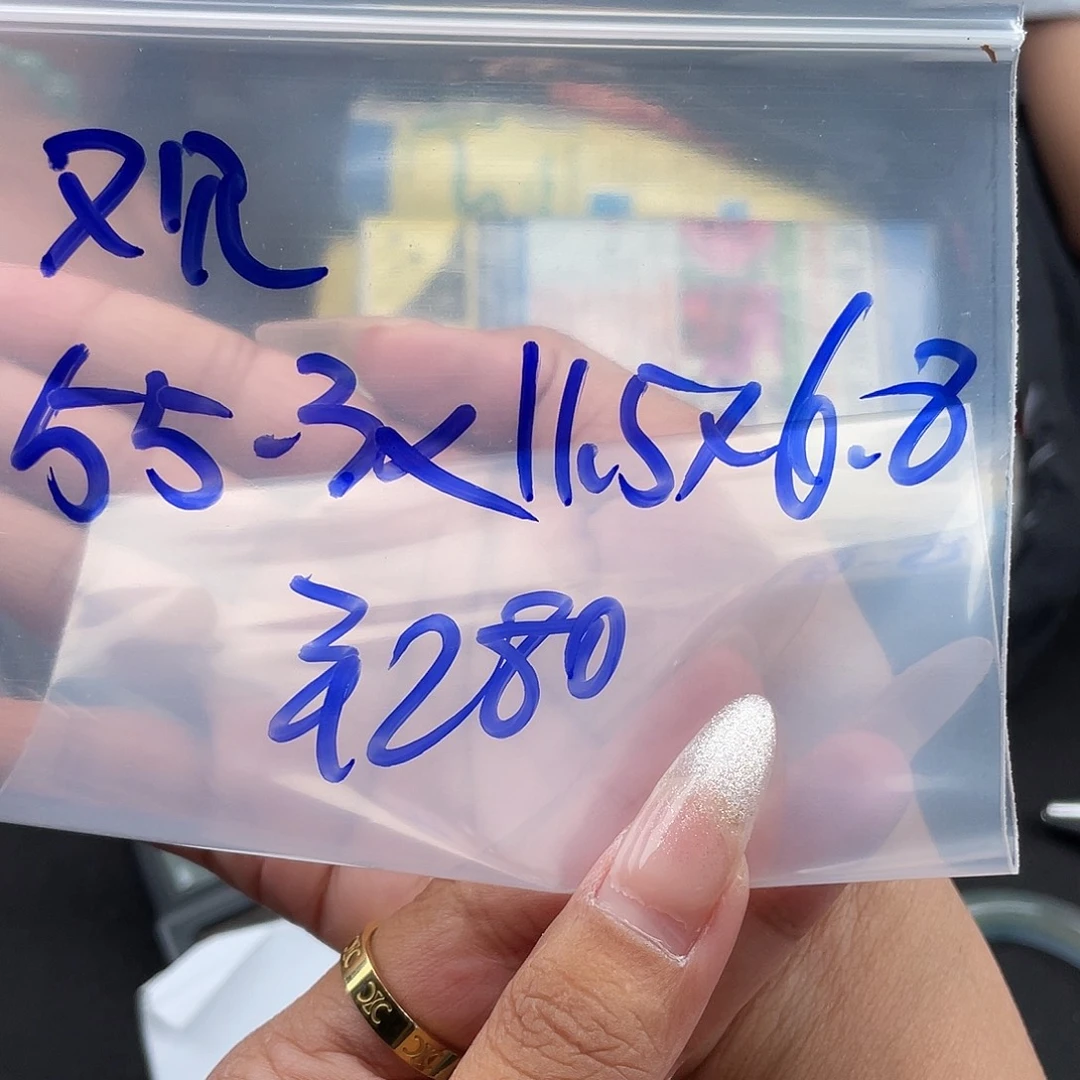 观
55.3x11.5x6.8
280